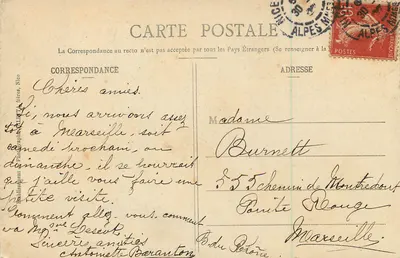 CARTE POSTALE
La Correspondance au recto n'est pas acceptée par tous les Pays Étrangers (Se renseigner à la
CORRESPONDANCE
ADRESSE
NICE
ALPES MARITIMES
Chères amies.
Si, nous arrivons assez
tôt à Marseille, soit
samedi prochain, ou
dimanche, il se pourrait
que j'aille vous faire une
petite visite.
Comment allez-vous, comment
va
Sincères amitiés
Antoinette Baranton
Madame
Burnett
555 chemin de Montredont
Pointe Rouge
Marseille
B. du Rhône